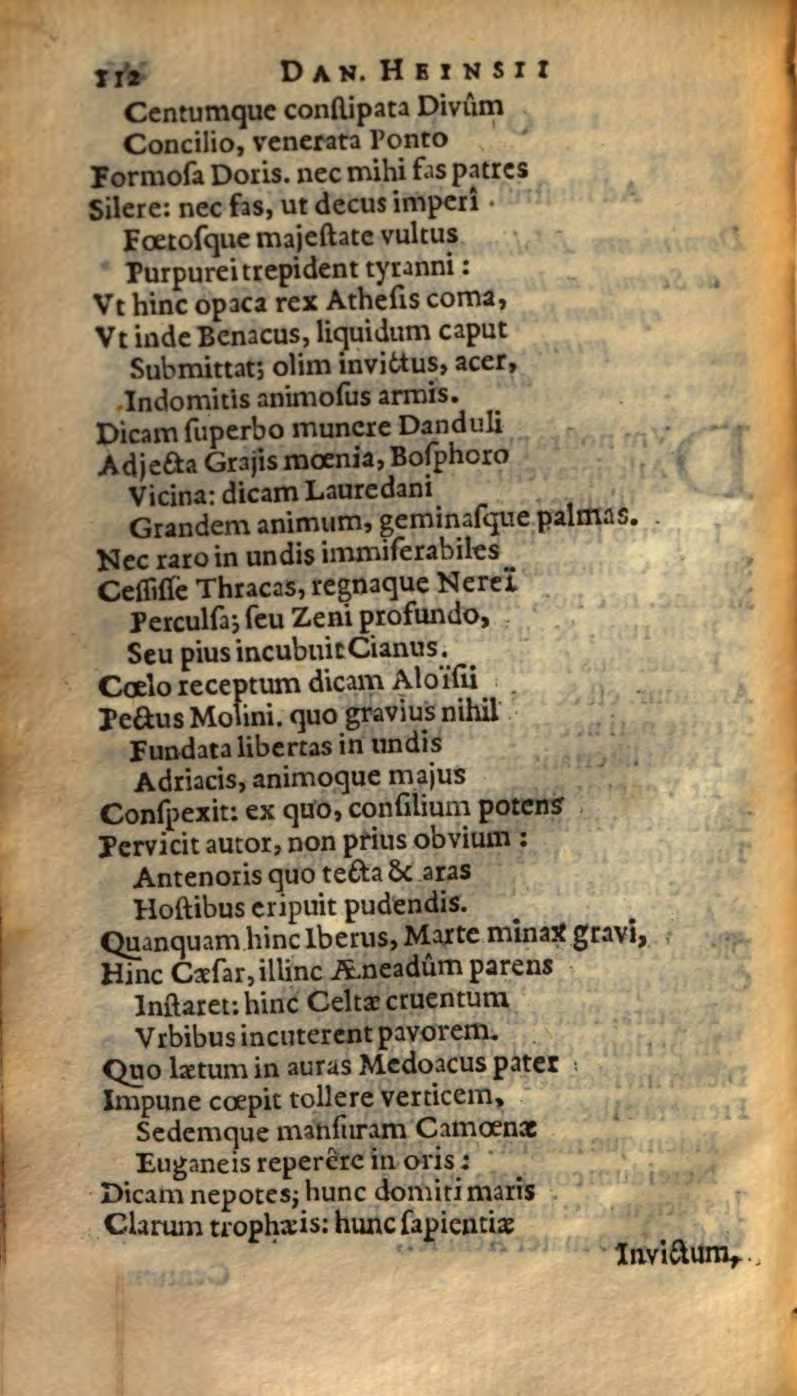 112 DAN. HEINSII
Centumque conſtipata Divûm
Concilio, venerata Ponto
Formoſa Doris. nec mihi fas patres
Silere: nec fas, ut decus imperî
Fœtoſque majeſtate vultus
Purpurei trepident tyranni:
Vt hinc opaca rex Atheſis coma,
Vt inde Benacus, liquidum caput
Submittat; olim invictus, acer,
Indomitis animoſus armis.
Dicam ſuperbo munere Danduli
Adjecta Grajis mœnia, Boſphoro
Vicina: dicam Lauredani
Grandem animum, geminaſque palmas.
Nec raro in undis immiſerabiles
Ceſſiſſe Thracas, regnaque Nereï
Perculſa; ſeu Zeni profundo,
Seu pius incubuit Cianus.
Cœlo receptum dicam Aloïſii
Pectus Molini. quo gravius nihil
Fundata libertas in undis
Adriacis, animoque majus
Conſpexit: ex quo, conſilium potens
Pervicit autor, non prius obvium:
Antenoris quo tecta & aras
Hoſtibus eripuit pudendis.
Quanquam hinc Iberus, Marte minax gravi,
Hinc Cæſar, illinc Æneadûm parens
Inſtaret: hinc Celtæ cruentum
Vrbibus incuterent pavorem.
Quo lætum in auras Medoacus pater
Impune cœpit tollere verticem,
Sedemque manſuram Camœnæ
Euganeis reperêre in oris:
Dicam nepotes; hunc domiti maris
Clarum trophæis: hunc ſapientiæ
Invictum,